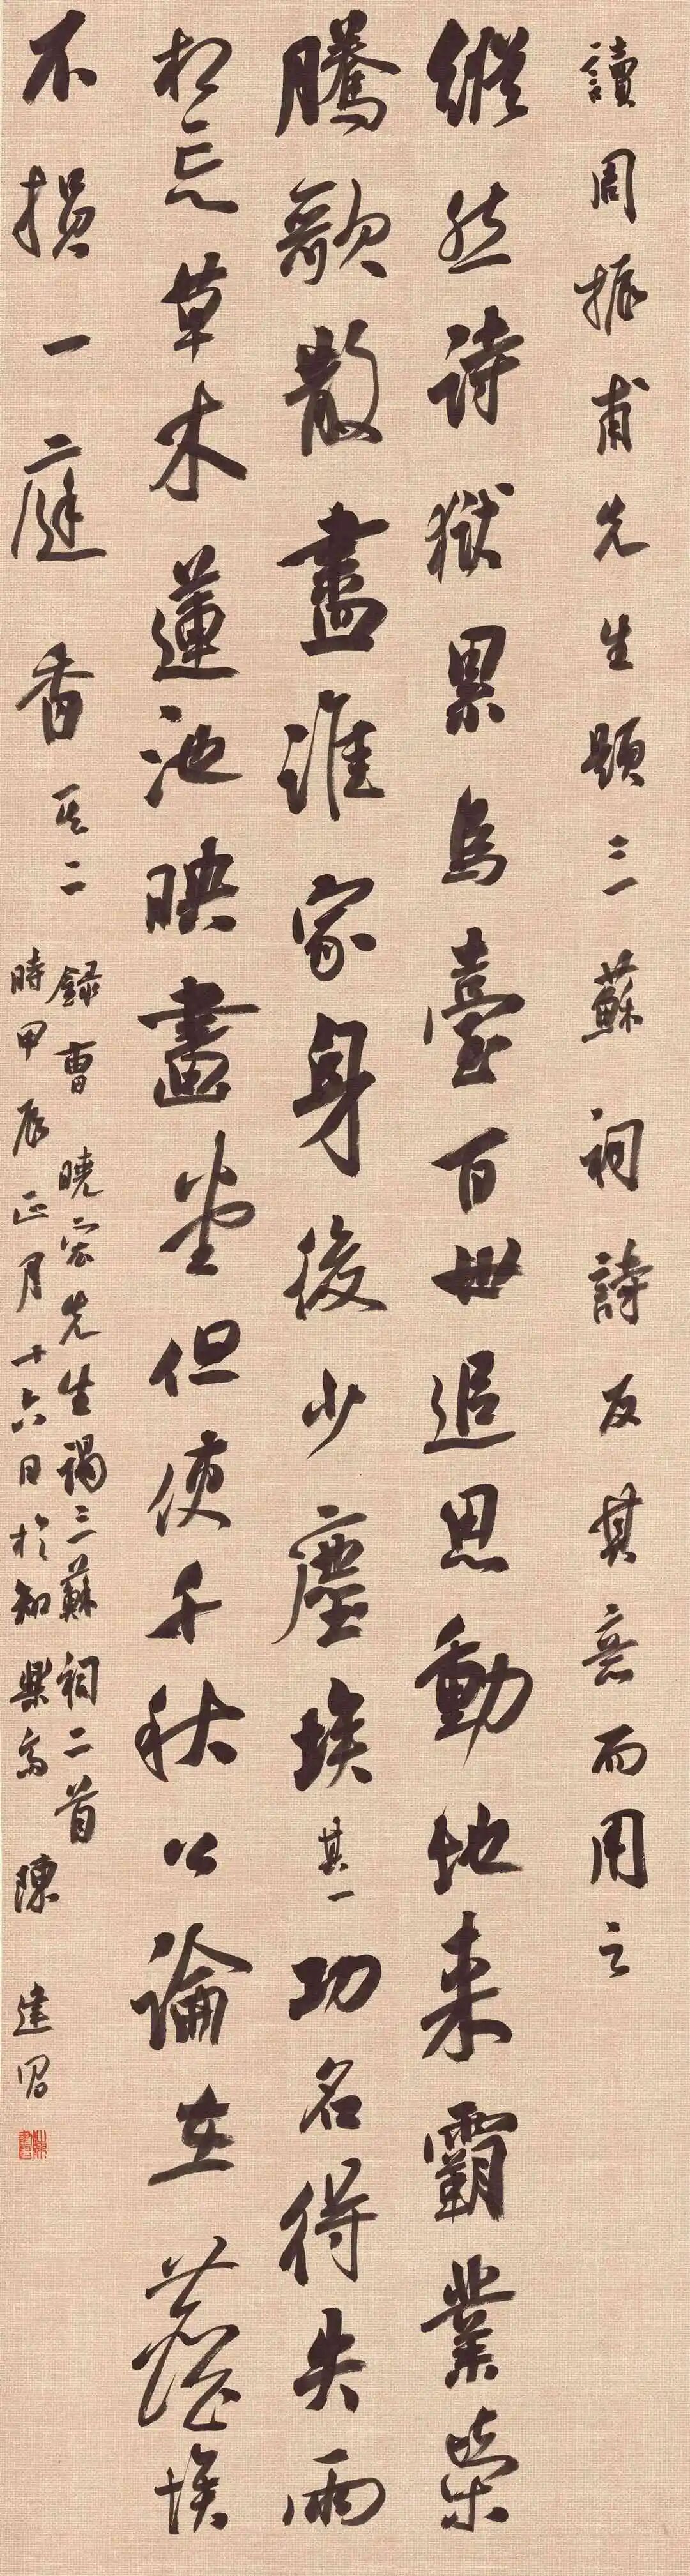 讀周振甫先生題三蘇祠詩反其意而用之
縱然詩獄累烏臺百世追思動地来霸業榮
騰歌散盡誰家身後少塵埃其一功名得失兩
相忘草木蓮池映畫堂但使千秋公論在埃
不損一庭香其二
錄曹曉宏先生謁三蘇祠二首
時甲辰正月十六日於知樂齋陳建